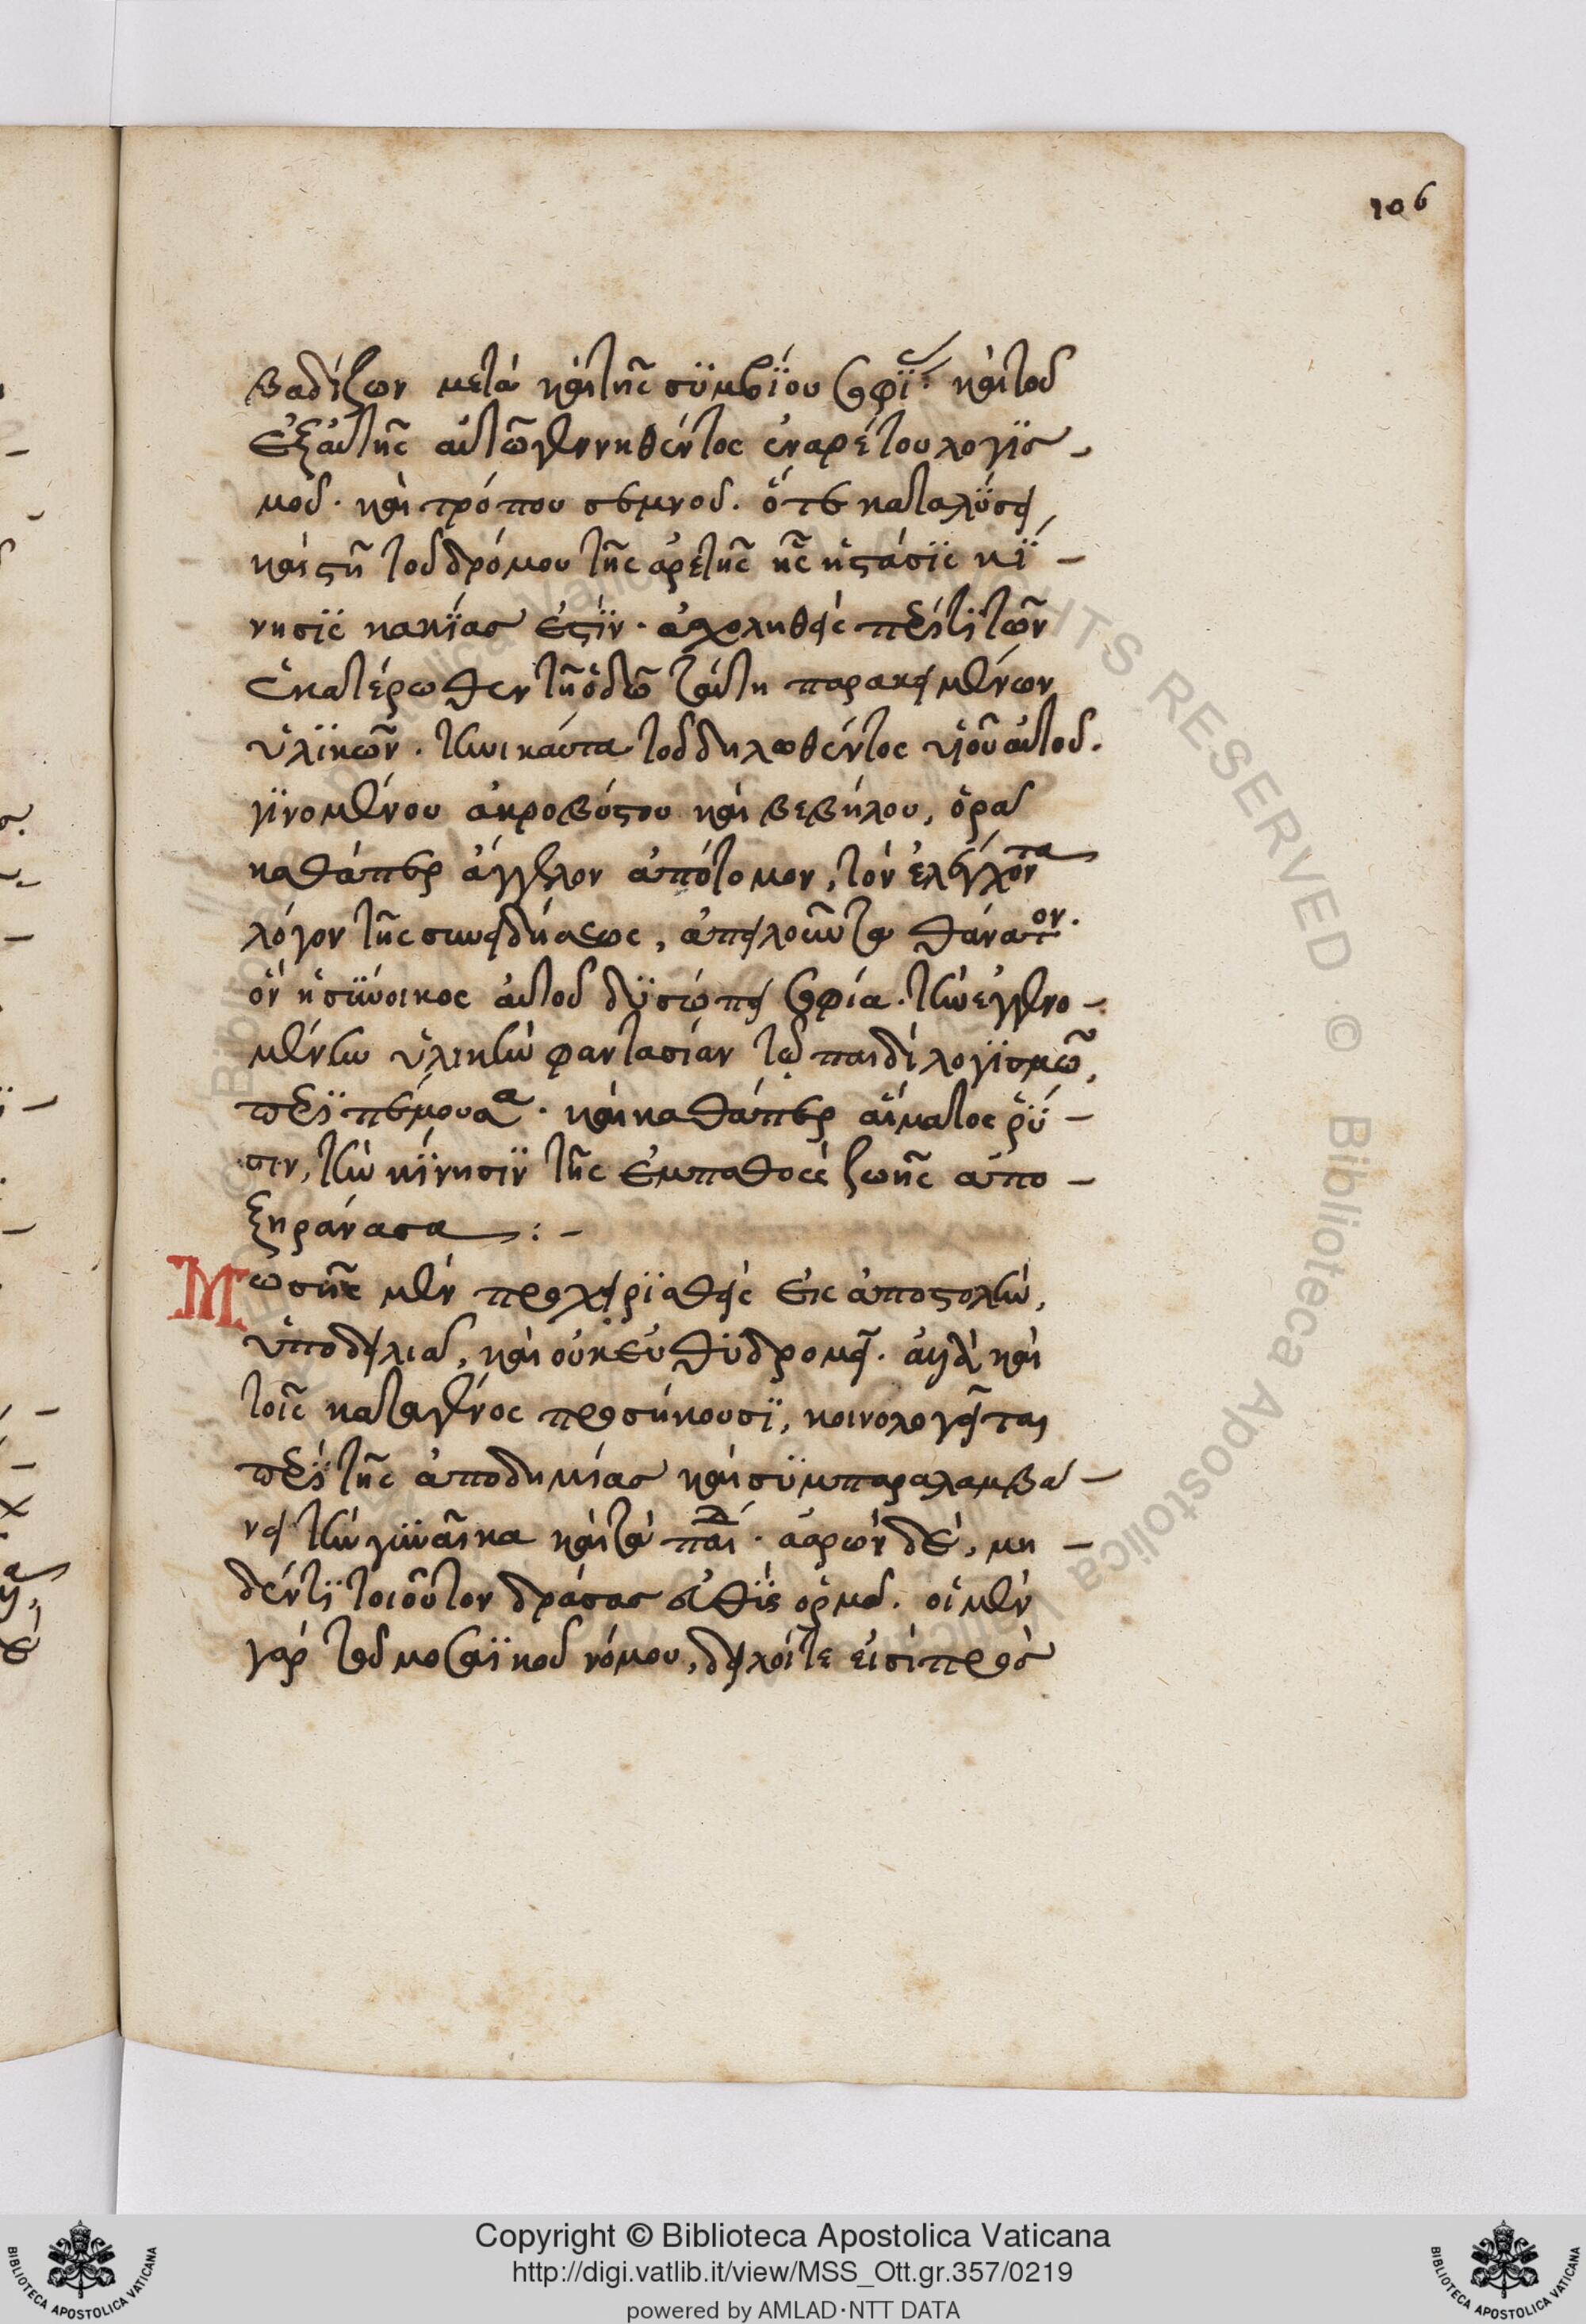 106
βαδίζων μετὰ καὶ τῆς συμβίου σοφί<ας> καὶ τοῦ
ἐξ αὐτῆς αὐτῶ γεννηθέντος ἐναρέτου λογισ-
μοῦ. καὶ τρόπου σεμνοῦ. ὅτε καταλύσει
καὶ στῆ τοῦ δρόμου τῆς ἀρετῆς ἧς ἡ στάσις κί-
νησις κακίας ἐστίν. ἀσχοληθεὶς περί τι τῶν
ἑκατέρωθεν τῆ ὁδῶ ταύτη παρακειμένων
ὑλικῶν. τηνικαῦτα τοῦ δηλωθέντος υἱοῦ αὐτοῦ.
γινομένου ἀκροβύστου καὶ βεβήλου, ὁρᾶ
καθάπερ ἄγγελον ἀπότομον, τὸν ἐλέγχοντα
λόγον τῆς συνειδήσεως, ἀπειλοῦντα θάνατον.
ὃν ἡ σύνοικος αὐτοῦ δυσωπεῖ σοφία. τὴν ἐγγινο-
μένην ὑλικὴν φαντασίαν τῶ παιδὶ λογισμῶ,
περιτεμοῦσα. καὶ καθάπερ αἵματος ῥύ-
σιν, τὴν κίνησιν τῆς ἐμπαθοῦς ζωῆς ἀπο-
ξηράνασα :-
Μωσῆς μὲν προχειρισθεὶς εἰς ἀποστολὴν,
ὑποδειλιᾶ, καὶ οὐκ εὐθυδρομεῖ. ἀλλὰ καὶ
τοῖς κατὰ γένος προσήκουσι, κοινολογεῖται
περὶ τῆς ἀποδημίας καὶ συμπαραλαμβά-
νει τὴν γυναῖκα καὶ τὰ παιδία. ἀαρὼν δὲ, μη-
δέν τι τοιοῦτον δράσας εὐθὺς ὁρμᾶ. οἱ μὲν
γὰρ τοῦ μοσαϊκοῦ νόμου, δειλοί τε εἰσὶ πρὸς
Copyright © Biblioteca Apostolica Vaticana
http://digi.vatlib.it/view/MSS_Ott.gr.357/0219
powered by AMLAD·NTT DATA
BIBLIOTECA APOSTOLICA VATICANA
BIBLIOTECA APOSTOLICA VATICANA